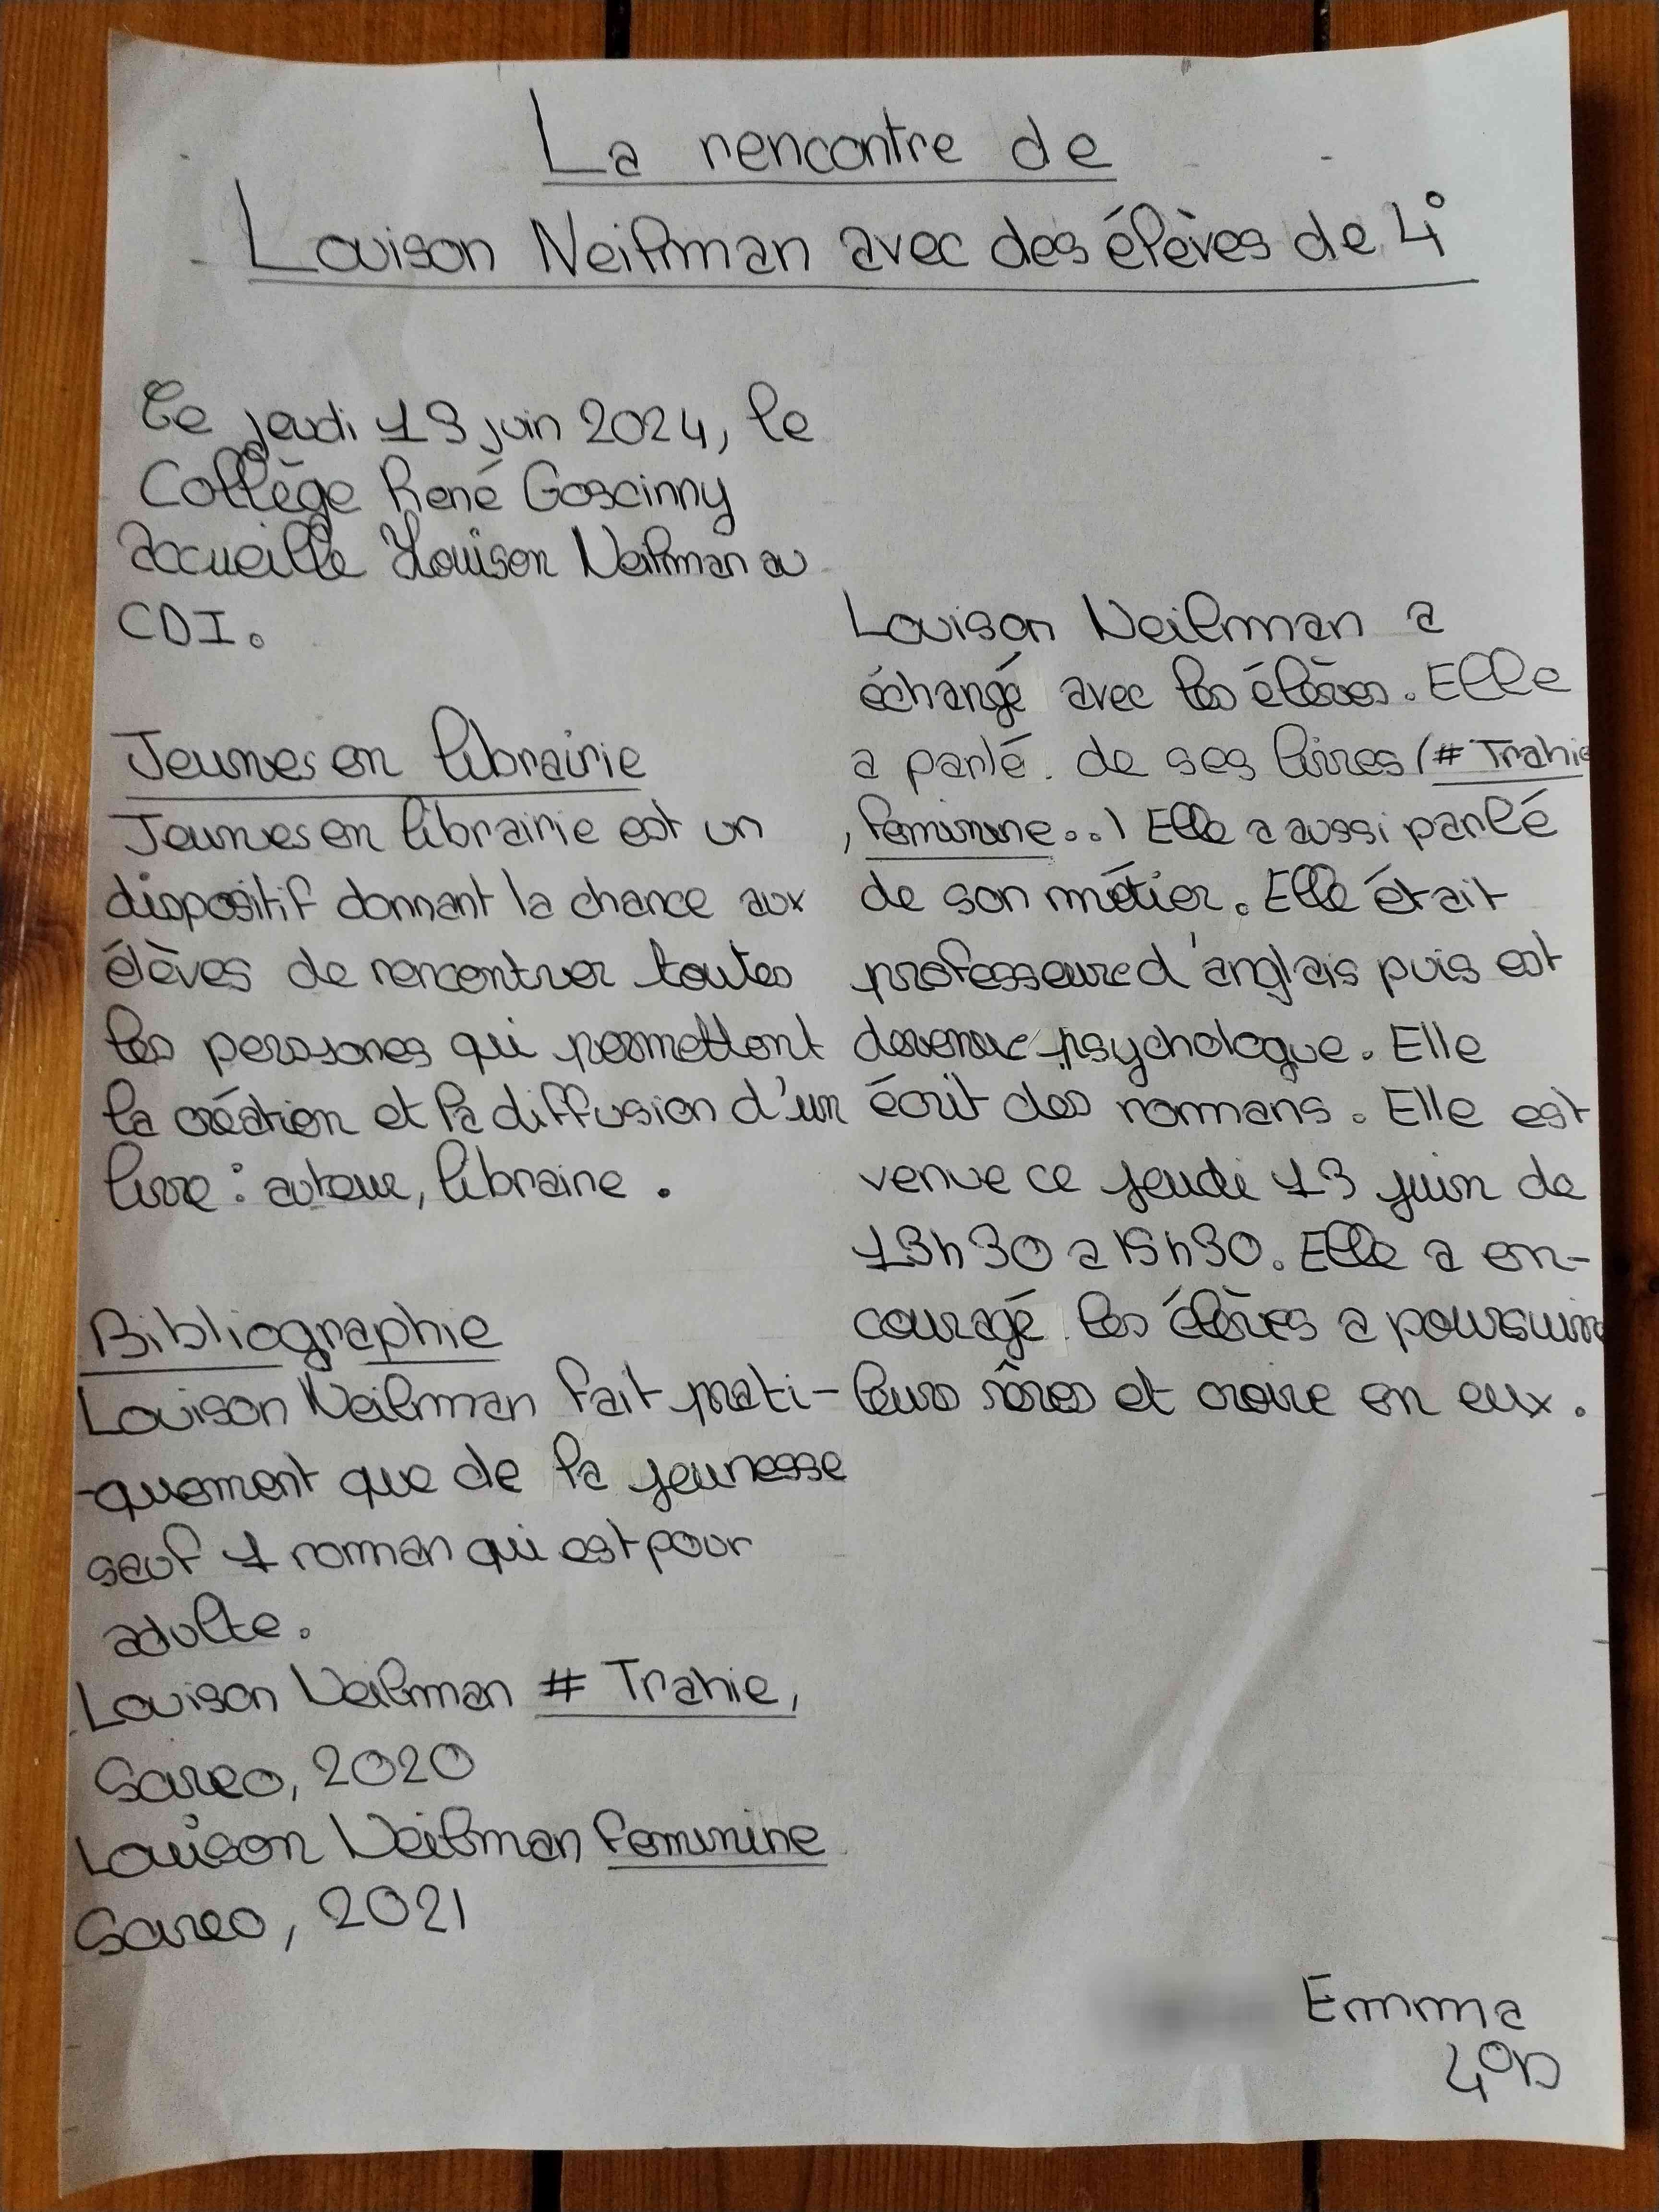 La rencontre de
Louison Neilman avec des élèves de 4°
Le jeudi 13 juin 2024, le
Collège René Goscinny
accueille Louison Neilman au
CDI.
Jeunes en librairie
Jeunes en librairie est un
dispositif donnant la chance aux
élèves de rencontrer toutes
les perssones qui permettent
la création et la diffusion d'un
livre : auteur, libraire .
Bibliographie
Louison Neilman fait prati-
-quement que de la jeunesse
sauf 1 roman qui est pour
adulte.
Louison Neilman # Trahie,
2020
Louison Neilman feminine
2021
Louison Neilman a
échangé avec les élèves. Elle
a parlé de ses livres (# Trahie
, feminine..) Elle a aussi parlé
de son métier. Elle était
professeure d'anglais puis est
devenue psychologue. Elle
écrit des romans. Elle est
venue ce jeudi 13 juin de
13h30 a 15h30. Elle a en-
couragé les élèves a poursuivre
leurs rêves et croire en eux.
Emma